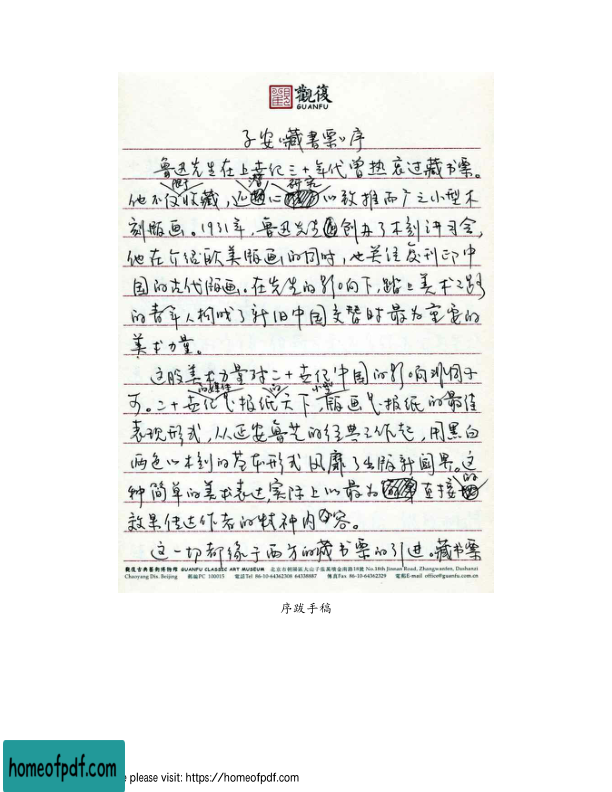 觀復
GUANFU
子安《藏書票》序
鲁迅先生在上世纪三十年代曾热衷过藏书票。
他不仅收藏，还潜心研究以致推而广之小型木
刻版画。1931年，鲁迅先生创办了木刻讲习会，
他在介绍欧美版画的同时，也关注复刊印中
国的古代版画。在先生的影响下，踏上美术之路
的青年人构成了新旧中国交替时最为重要的
美术力量。
这股美术力量对二十世纪中国的影响非同小
可。二十世纪的媒体以报纸为天下，小型版画为报纸的最佳
表现形式，从延安鲁艺的经典之作起，用黑白
两色以木刻的基本形式风靡了出版新闻界。这
种简单的美术表达，实际上以最为直接的
效果传达作者的精神内容。
这一切都缘于西方的藏书票的引进。藏书票
觀復古典藝術博物館 GUANFU CLASSIC ART MUSEUM 北京市朝陽區大山子張萬墳金南路18號 No.18th Jinnan Road, Zhangwanfen, Dashanzi
Chaoyang Dis. Beijing 郵編PC 100015 電話Tel 86-10-64362308 64338887 傳真Fax 86-10-64362329 電郵E-mail office@guanfu.com.cn
序跋手稿
homeofpdf.com
e please visit: https://homeofpdf.com